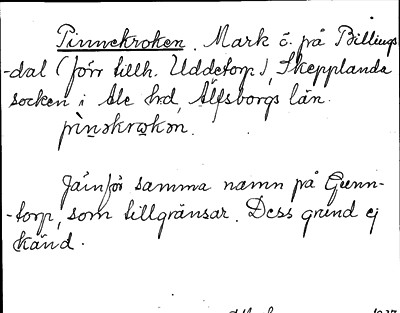 Pinnekroken. Mark ö. på Billings-
-dal (förr tillh. Uddetorp), Skepplanda
socken i Ale hd, Älfsborgs län.
pìnəkrωkən.
Jämför samma namn på Gunn-
-torp, som tillgränsar. Dess grund ej
känd.